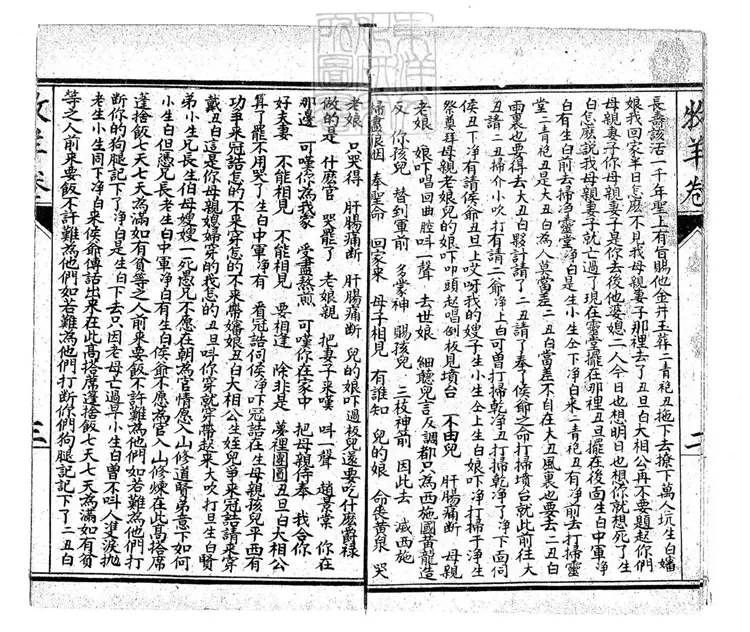 牧羊卷
二
長壽該活一千年聖上有旨賜他金井玉葬二青袍丑拖下去撩下萬人坑生白嬸
娘我回家半日怎麽不見我母親妻子那里去了丑旦白大相公再不要題起你們
母親妻子你母親妻子是你去後他婆媳二人今日也想明日也想你就想死了生
白怎麽說我母親妻子就亡過了現在靈堂擺在那裡丑旦擺在後面生白中軍淨
白有生白前去掃淨靈堂淨白是生小生仝下淨白釆二青袍丑有淨前去打掃靈
堂二青袍丑是大丑白為人莫當差二丑白當差不自在大丑風裏也要去二丑白
雨裏也要得去大丑白夥計請了二丑請了奉了侯爺之命打掃墳台就此前往大
丑請二丑掃介小吹打有請二爺淨上白可曾打掃乾淨丑打掃乾淨了淨下面伺
侯丑下淨有請侯爺丑旦上哎呀我的嫂子生小生仝上生白娘吓淨打掃干淨生
祭尊拜母親老娘兒的娘吓叩頭起唱倒板見墳台 不由兒 肝腸痛斷 母親
老娘 娘吓唱回曲腔叫一聲 去世娘 細聽兒言反調都只為西施國黃龍造
反 你孩兒 替到軍前 多蒙神 賜孩兒 三枝神前 因此去 滅西施
掃盡狼烟 奉聖命 回家來 母子相見 有誰知 兒的娘 命喪黃泉 哭
老娘 只哭得 肝腸痛斷 肝腸痛斷 兒的娘吓過板兒還要吃什麽爵祿
做的是 什麽官 哭罷了 老娘親 把妻子來嘆 叫一聲 趙景棠 你在
那邊 可嘆你為我家 受盡熬煎 可嘆你在家中 把母親侍奉 我合你
好夫妻 不能相見 不能相見 要相逢 除非是 夢裡團圓丑旦白大相公
算了罷不用哭了生白中軍淨有 看冠誥伺侯淨吓冠誥在生母親孩兒平西有
功爭來冠誥怎的不來穿怎的不來帶嬸娘丑白大相公生姪兒爭來冠誥請來穿
戴丑白這是你母親媳婦穿的我怎的丑旦叫你穿就穿帶起來大吹打旦生白賢
弟小生兄長生伯母嫂嫂一死愚兄不愿在朝為官情愿入山修道賢弟意下如何
小生白但憑兄長老生白中軍淨白有生白侯爺不愿為官入山修煉在此高搭席
蓬捨飯七天七天為滿如有貧等之人前來要飯不許難為他們如若難為他們打
斷你的狗腿記下了淨白是生白下去只因老母亡過早小生白曾不叫人雙淚拋
老生小生同下淨白釆侯爺傳話出來在此高搭席蓬捨飯七天七天為滿如有貧
等之人前來要飯不許難為他們如若難為他們打斷你們狗腿記記下了二丑白
牧羊卷
三